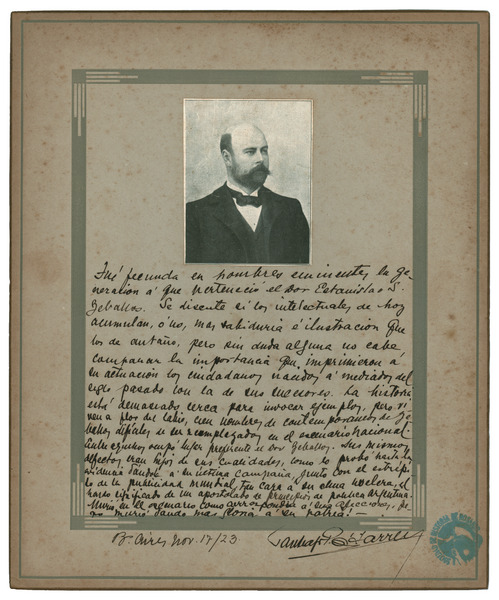 Fué fecunda en hombres eminentes la ge-
neración á que perteneció el Dor Estanislao S.
Zeballos. Se discute si los intelectuales de hoy
acumulan, ó no, mas sabiduria é ilustración que
los de antaño, pero sin duda alguna no cabe
comparar la importancia que imprimieron á
su actuación los ciudadanos nacidos á mediados del
siglo pasado con la de sus sucesores. La historia
está demasiado cerca para invocar ejemplos, pero vi
nen a flor de labio, cien nombres de contemporaneos de Ze-
ballos dificiles de ser reemplazados en el escenario nacional.
Entre algunos ocupó lugar prominente el Dor Zeballos. Sus mismos
defectos, eran hijos de sus cualidades, como lo probó hasta la
evidencia dando á su última campaña, junto con el estrépi-
to de la publicidad mundial, tan cara á su alma
 de un apostolado de principios de política argentina.
Murió en el como correspondia á sus aficciones, pe-
ro murió dando mas gloria á su patria! —
Bs. Aires Nov. 17/23. Santiago G. O'Farrell